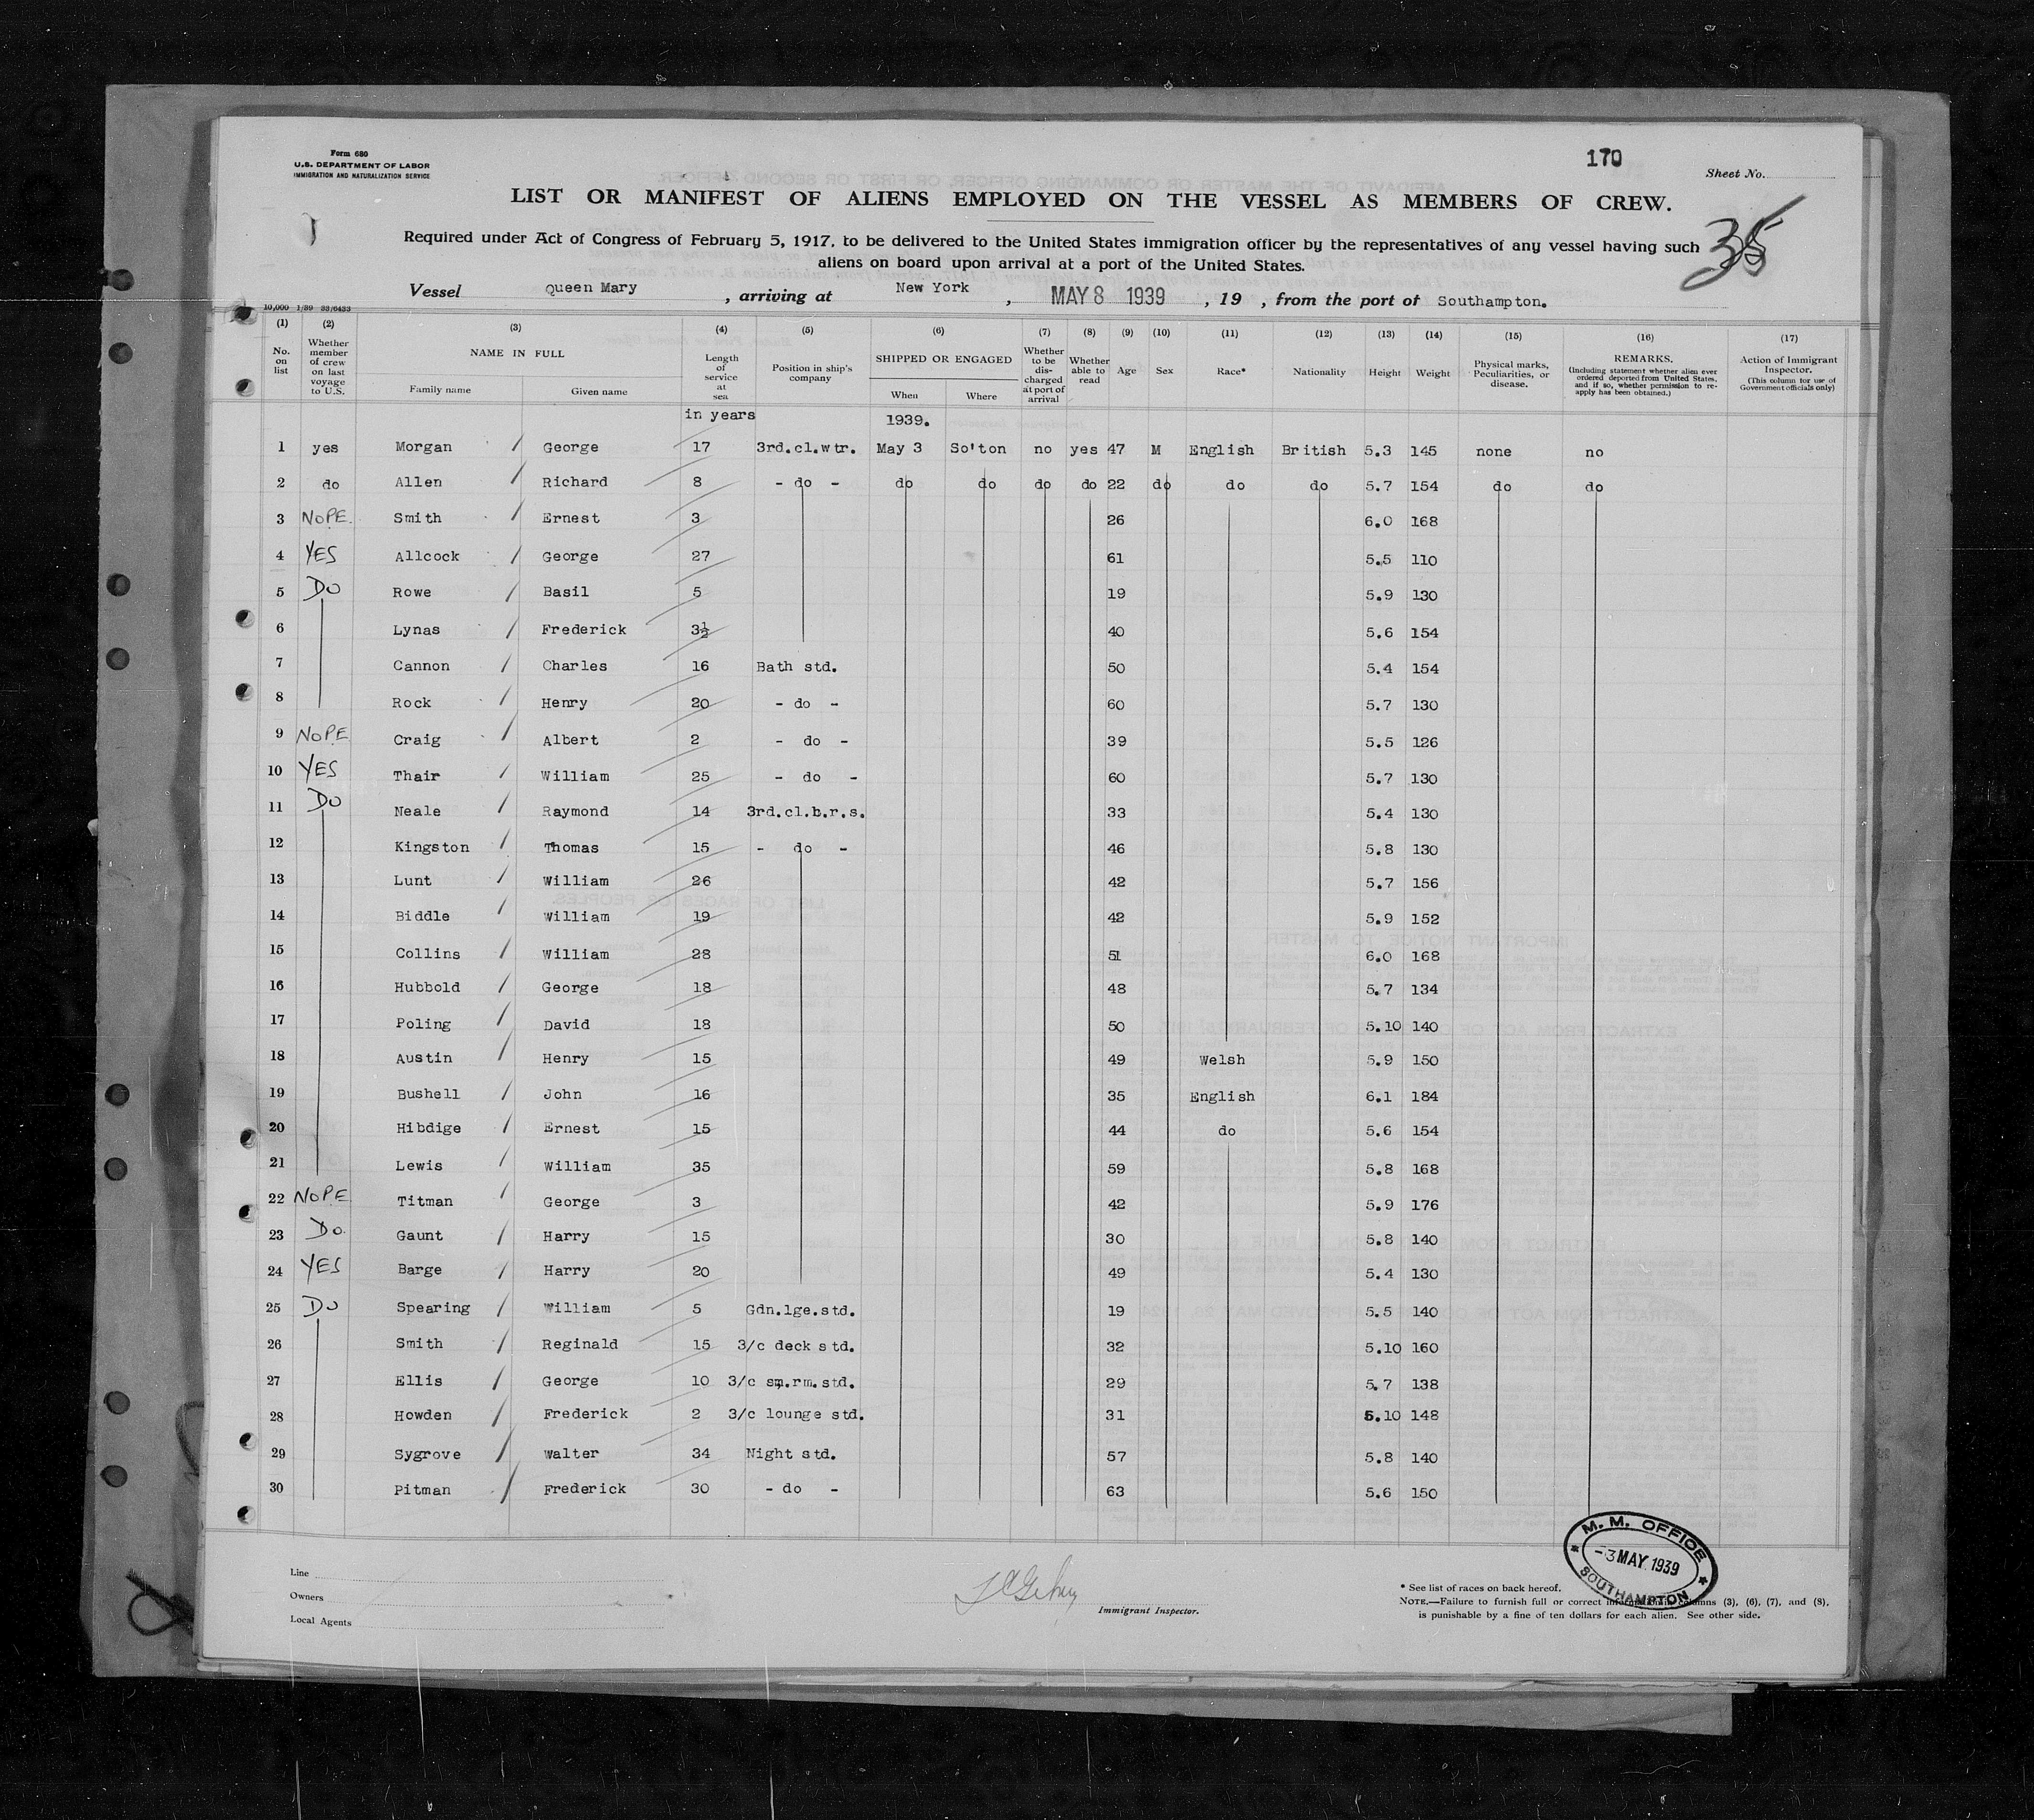 Form 680
U.S. DEPARTMENT OF LABOR
IMMIGRATION AND NATURALIZATION SERVICE
170
Sheet No.
35
LIST OR MANIFEST OF ALIENS EMPLOYED ON THE VESSEL AS MEMBERS OF CREW.
Required under Act of Congress of February 5, 1917, to be delivered to the United States immigration officer by the representatives of any vessel having such
aliens on board upon arrival at a port of the United States.
Vessel Queen Mary , arriving at New York , MAY 8 1939 , 19 , from the port of Southampton.
10,000 1/39 33/6433
(1) (2) (3) (4) (5) (6) (7) (8) (9) (10) (11) (12) (13) (14) (15) (16) (17)
No. on list Whether member of crew on last voyage to U.S. NAME IN FULL Family name Given name Length of service at sea Position in ship's company SHIPPED OR ENGAGED When Where Whether to be discharged at port of arrival Whether able to read Age Sex Race* Nationality Height Weight Physical marks, Peculiarities, or disease. REMARKS. (Including statement whether alien ever ordered deported from United States, and if so, whether permission to re-apply has been obtained.) Action of Immigrant Inspector. (This column for use of Government officials only)
in years 1939.
1 yes Morgan / George 17 3rd.cl.wtr. May 3 So'ton no yes 47 M English British 5.3 145 none no
2 do Allen / Richard 8 - do - do do do do 22 do do do 5.7 154 do do
3 NOPE. Smith / Ernest 3 26 6.0 168
4 YES Allcock / George 27 61 5.5 110
5 DO Rowe / Basil 5 19 5.9 130
6 Lynas / Frederick 3½ 40 5.6 154
7 Cannon / Charles 16 Bath std. 50 5.4 154
8 Rock / Henry 20 - do - 60 5.7 130
9 NOPE Craig / Albert 2 - do - 39 5.5 126
10 YES Thair / William 25 - do - 60 5.7 130
11 DO Neale / Raymond 14 3rd.cl.b.r.s. 33 5.4 130
12 Kingston / Thomas 15 - do - 46 5.8 130
13 Lunt / William 26 42 5.7 156
14 Biddle / William 19 42 5.9 152
15 Collins / William 28 51 6.0 168
16 Hubbold / George 18 48 5.7 134
17 Poling / David 18 50 5.10 140
18 Austin / Henry 15 49 Welsh 5.9 150
19 Bushell / John 16 35 English 6.1 184
20 Hibdige / Ernest 15 44 do 5.6 154
21 Lewis / William 35 59 5.8 168
22 NOPE Titman / George 3 42 5.9 176
23 Do. Gaunt / Harry 15 30 5.8 140
24 YES Barge / Harry 20 49 5.4 130
25 DO Spearing / William 5 Gdn.lge.std. 19 5.5 140
26 Smith / Reginald 15 3/c deck std. 32 5.10 160
27 Ellis / George 10 3/c sm.rm.std. 29 5.7 138
28 Howden / Frederick 2 3/c lounge std. 31 5.10 148
29 Sygrove / Walter 34 Night std. 57 5.8 140
30 Pitman / Frederick 30 - do - 63 5.6 150
Line
Owners
Local Agents
Immigrant Inspector.
M. M. OFFICE
-3 MAY 1939
SOUTHAMPTON
* See list of races on back hereof.
NOTE.—Failure to furnish full or correct information in columns (3), (6), (7), and (8),
is punishable by a fine of ten dollars for each alien. See other side.